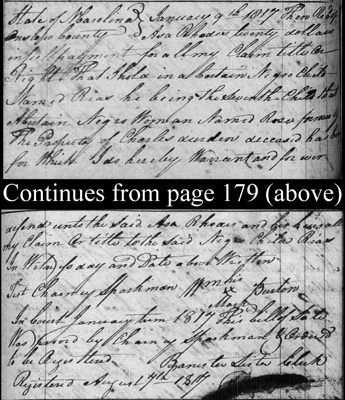 State of No Carolina } January 9th 1817 Then Recd
Onslow County } of Asa Rhodes twenty dollars
in full payment for all my Claim title or
Right That I hold in a Certain Negro Child
Named Rias he being the Seventh Child that
a Certain Negro Woman Named Rose formerly
The Property of Charles deceased has
for Which I do hereby Warrant and for ever
Continues from page 179 (above)
defend unto the Said Asa Rhodes and his heirs all
my Claim or title to the Said Negro Child Rias
In Witness day and Date above Written
Test Chancy Sparkman Wm his X Mark Burton
In Court January term 1817 This bill of Sale
Was proved by Chancy Sparkman & Ordered
to be Registered
Banister Lister Clerk
Registered August 7th 1817